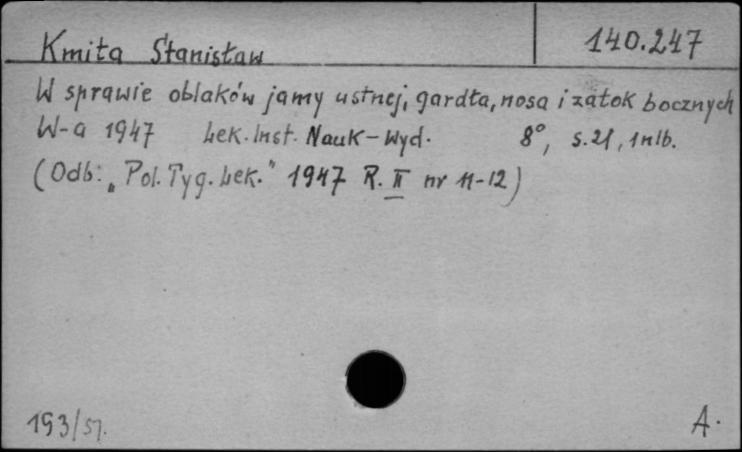 140.247
Kmita Stanisław
W sprawie oblaków jamy ustnej, gardła, nosa i zatok bocznych
W-a 1947 Lek. Inst. Nauk-Wyd. 8°, s.21, 1nlb.
(Odb: „Pol. Tyg. Lek." 1947 R. II nr 11-12)
193/51. A.